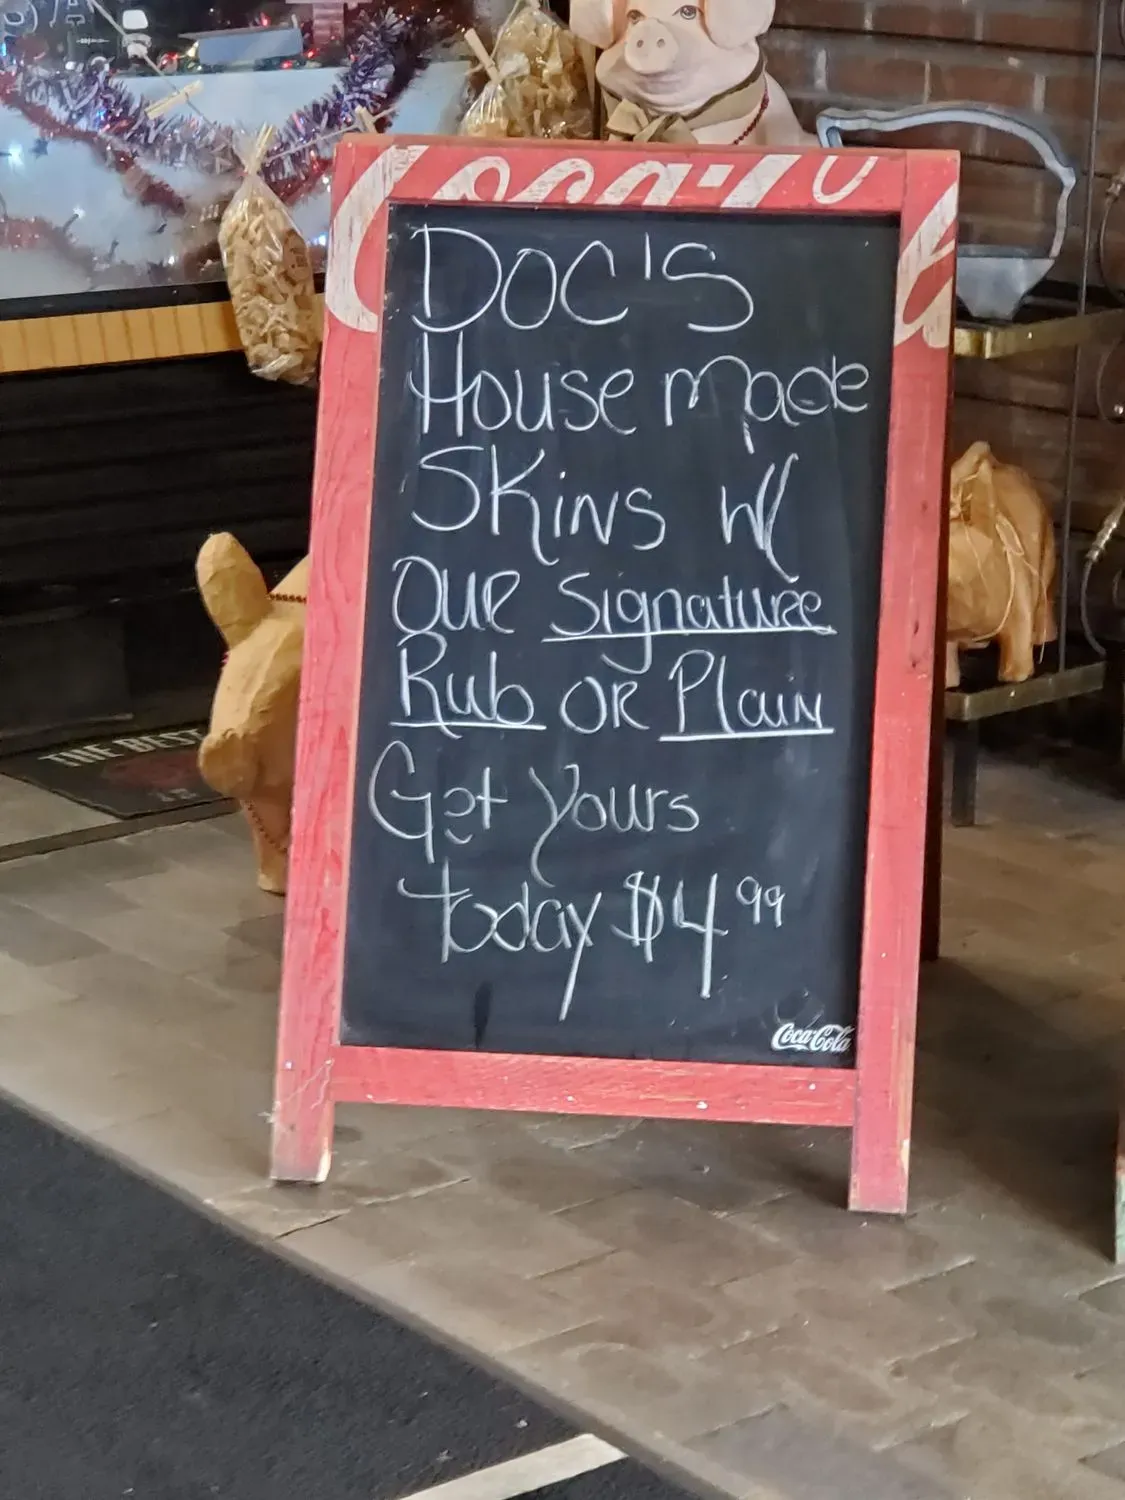 Coca-Cola
Doc's
House made
Skins w/
our Signature
Rub or Plain
Get Yours
Today $4.99
Coca-Cola
THE BEST